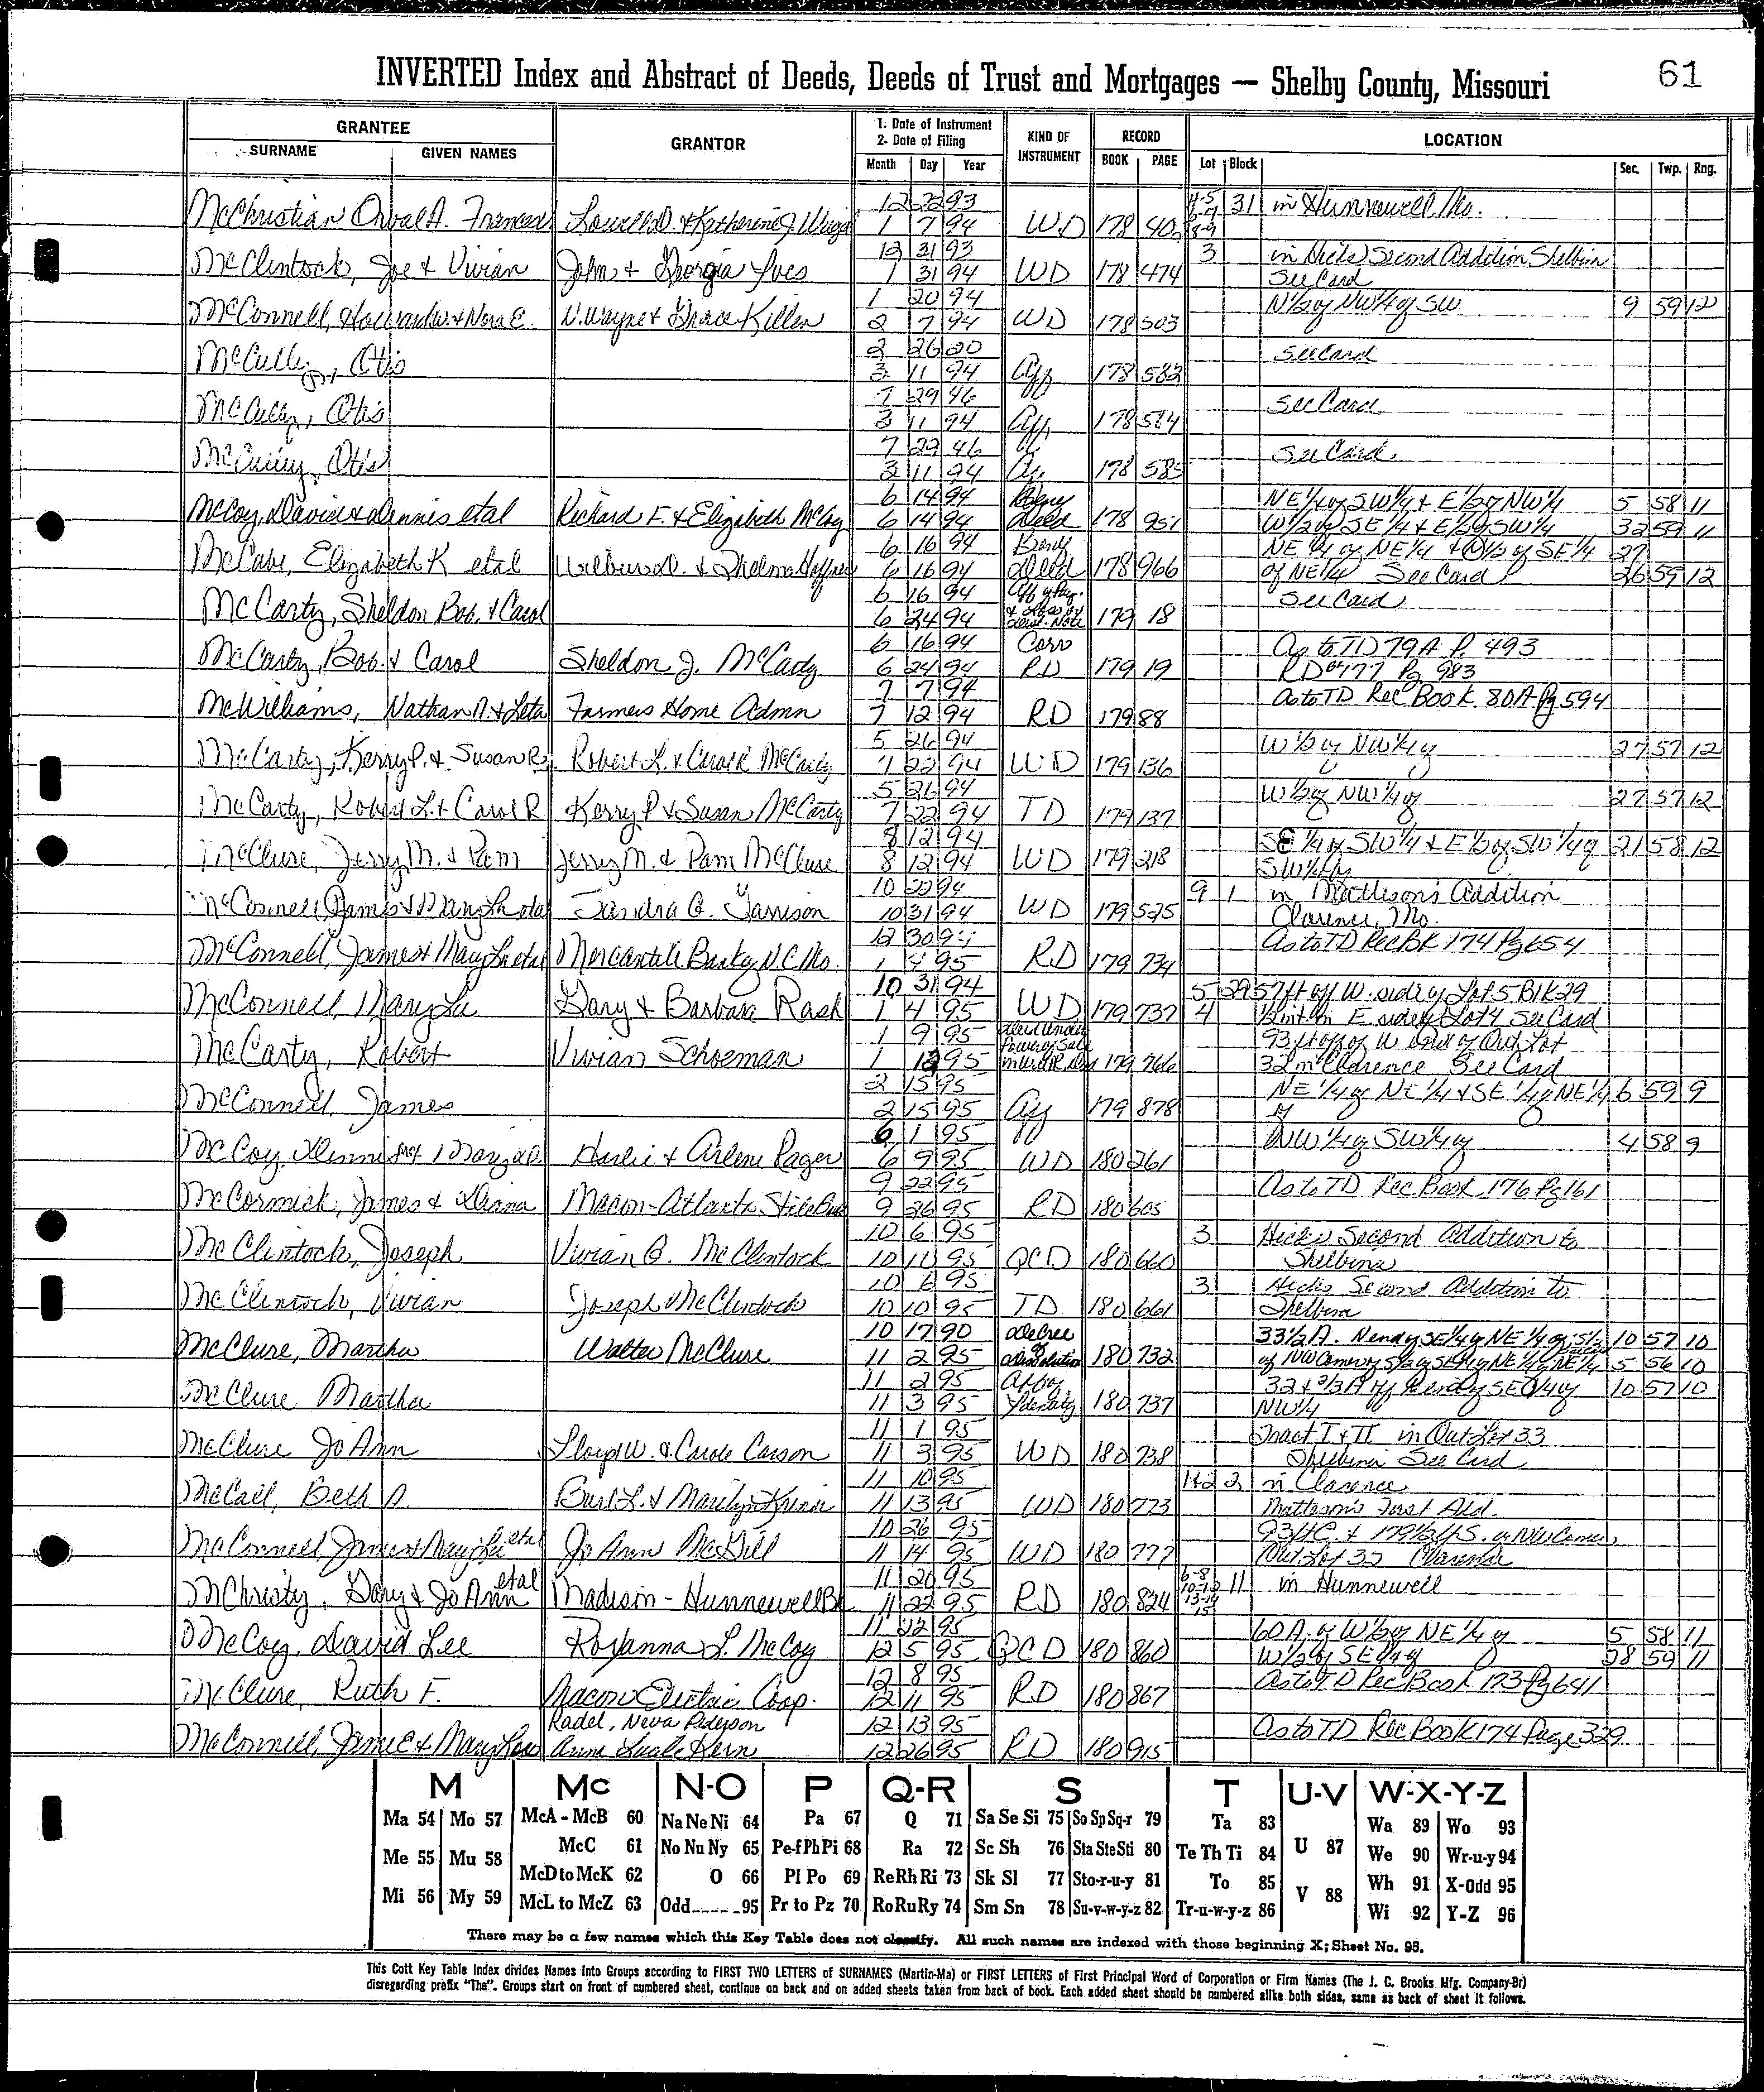 INVERTED Index and Abstract of Deeds, Deeds of Trust and Mortgages — Shelby County, Missouri 61
GRANTEE GRANTOR 1. Date of Instrument 2. Date of Filing KIND OF INSTRUMENT RECORD LOCATION
SURNAME GIVEN NAMES Month Day Year BOOK PAGE Lot Block Sec. Twp. Rng.
12 93 4-5 31 in Hunnewell Mo.
McChristian Orval A. Frances Lowell D. & Katherine J. 1 7 94 WD 178 8-9
12 31 93 3 in Hicks Second Addition Shelbina
McClintock, Joe & Vivian John & Georgia Ives 1 31 94 WD 178 474 See Card
1 20 94 N½ of NW¼ of SW 9 59 12
McConnell, & Nora E. V. Wayne & Grace Killen 2 7 94 WD 178 503
2 26 20 See Card
McCully, Otis 3 11 94 Aff 178 583
7 29 46 See Card
McCully, Otis 3 11 94 Aff 178 584
7 29 46 See Card
McCully, Otis 3 11 94 178 585
6 14 94 NE¼ of SW¼ & E½ of NW¼ 5 58 11
McCoy, David & Dennis etal Richard F. & Elizabeth McCoy 6 14 94 Deed 178 951 W½ of SE¼ & E½ of SW¼ 32 59 11
6 16 94 NE¼ of NE¼ & N½ of SE¼ 27
McCabe, Elizabeth K etal Wilbur D. & Thelma 6 16 94 Deed 178 966 of NE¼ See Card 26 59 12
6 16 94 See Card
McCarty, Sheldon Bob & Carol 6 24 94 179 18
6 16 94 Corr As to TD 79A P. 493
McCarty, Bob & Carol Sheldon J. McCarty 6 24 94 RD 179 19 RD 177 Pg 983
7 7 94 As to TD Rec Book 80A Pg 594
McWilliams, Nathan A & Leta Farmers Home Admn 7 12 94 RD 179 88
5 26 94 W½ of NW¼ of 27 57 12
McCarty, Kerry P. & Susan R. Robert L. & Carol R McCarty 7 22 94 WD 179 136
5 26 94 W½ of NW¼ of 27 57 12
McCarty, Robert L. & Carol R Kerry P & Susan McCarty 7 22 94 TD 179 137
8 12 94 SE¼ of SW¼ & E½ of SW¼ of 21 58 12
McClure, Jerry M. & Pam Jerry M. & Pam McClure 8 12 94 WD 179 218 SW¼
10 94 9 1 in Matteson's Addition
McConnell, James & Mary Lu etal Sandra G. Garrison 10 31 94 WD 179 525 Clarence, Mo.
12 30 94 As to TD Rec Bk 174 Pg 654
McConnell, James & Mary Lu etal Mercantile Bank of N.C. Mo. 1 4 95 RD 179 734
10 31 94 5 29 57 ft off W. side of Lot 5 Blk 29
McConnell, Mary Lu Gary & Barbara Rash 1 4 95 WD 179 737 4 E side of Lot 4 See Card
1 9 95 Deed Under Power of Sale 93 ft off of W end of Out Lot
McCarty, Robert Vivian Schoeman 1 12 95 179 766 32 in Clarence See Card
2 15 95 NE¼ of NE¼ & SE¼ of NE¼ 6 59 9
McConnell, James 2 15 95 Aff 179 878 of
6 1 95 NW¼ of SW¼ of 4 58 9
McCoy, Dennis & Mary & Arlene 6 9 95 WD 180 261
9 22 95 As to TD Rec Book 176 Pg 161
McCormick, James & Diana Macon-Atlanta State 9 26 95 RD 180 605
10 6 95 3 Hicks Second Addition to
McClintock, Joseph Vivian G. McClintock 10 10 95 QCD 180 660 Shelbina
10 6 95 3 Hicks Second Addition to
McClintock, Vivian Joseph McClintock 10 10 95 TD 180 661 Shelbina
10 17 90 Decree of 33½ A. N end of SE¼ of NE¼ of 10 57 10
McClure, Martha Walter McClure 11 2 95 dissolution 180 732 of NW Corner of S½ of SE¼ of NE¼ of NE¼ 5 56 10
11 2 95 Aff of 32 + 2/3 A off N end of SE¼ of 10 57 10
McClure Martha 11 3 95 Identity 180 737 NW¼
11 1 95 Tract I & II in Out Lot 33
McClure Jo Ann Lloyd W. & Carole Carson 11 3 95 WD 180 738 Shelbina See Card
11 10 95 1+2 2 in Clarence
McCall, Beth A. Burl L. & Marilyn 11 13 95 WD 180 773 Matteson's First Add.
10 26 95 NW Corner
McConnell, James & Mary Lu etal Jo Ann McGill 11 14 95 WD 180 777 Out Lot 32 Clarence
11 20 95 6-8 10-12 11 in Hunnewell
McChristy, Gary & Jo Ann etal Madison-Hunnewell Bk 11 22 95 RD 180 824 13-14 15
11 22 95 60 A. of W½ of NE¼ of 5 58 11
McCoy, David Lee Roxanna L. McCoy 12 5 95 QCD 180 860 W½ of SE¼ of 28 59 11
12 8 95 As to TD Rec Book 173 Pg 641
McClure, Ruth F. Macon Electric Coop. 12 11 95 RD 180 867
Radel, Neva Peterson 12 13 95 As to TD Rec Book 174 Page 329
McConnell, James & Mary Lou Anna Kern 12 26 95 RD 180 915
M Mc N-O P Q-R S T U-V W-X-Y-Z
Ma 54 Mo 57 McA - McB 60 Na Ne Ni 64 Pa 67 Q 71 Sa Se Si 75 So Sp Sq-r 79 Ta 83 Wa 89 Wo 93
Me 55 Mu 58 McC 61 No Nu Ny 65 Pe-f Ph Pi 68 Ra 72 Sc Sh 76 Sta Ste Sti 80 Te Th Ti 84 U 87 We 90 Wr-u-y 94
McD to McK 62 O 66 Pl Po 69 Re Rh Ri 73 Sk Sl 77 Sto-r-u-y 81 To 85 Wh 91 X-Odd 95
Mi 56 My 59 McL to McZ 63 Odd 95 Pr to Pz 70 Ro Ru Ry 74 Sm Sn 78 Su-v-w-y-z 82 Tr-u-w-y-z 86 V 88 Wi 92 Y-Z 96
There may be a few names which this Key Table does not classify. All such names are indexed with those beginning X; Sheet No. 95.
This Cott Key Table Index divides Names Into Groups according to FIRST TWO LETTERS of SURNAMES (Martin-Ma) or FIRST LETTERS of First Principal Word of Corporation or Firm Names (The J. C. Brooks Mfg. Company-Br)
disregarding prefix "The". Groups start on front of numbered sheet, continue on back and on added sheets taken from back of book. Each added sheet should be numbered alike both sides, same as back of sheet it follows.